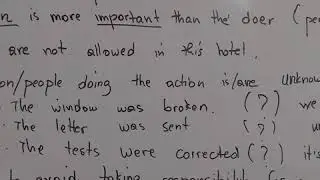 is more important than the doer (
are not allowed in this hotel.
on/people doing the action is/are unknow
The window was broken. (?) we
The letter was sent (?) u
The tests were corrected (?) it's
to avoid taking responsibility (